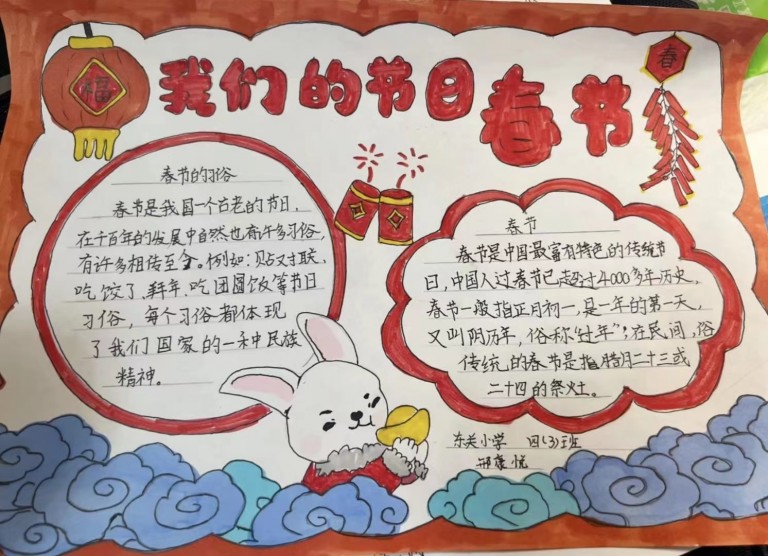 福
我们的节日春节
春
春节的习俗
春节是我国一个古老的节日,
在千百年的发展中自然也有许多习俗,
有许多相传至今。例如:贴对联、
吃饺子、拜年、吃团圆饭等节日
习俗,每个习俗都体现
了我们国家的一种民族
精神。
春节
春节是中国最富有特色的传统节
日,中国人过春节已超过4000多年历史。
春节一般指正月初一,是一年的第一天,
又叫阴历年,俗称“过年”;在民间,俗
传统的春节是指腊月二十三或
二十四的祭灶。
东关小学 四(3)班